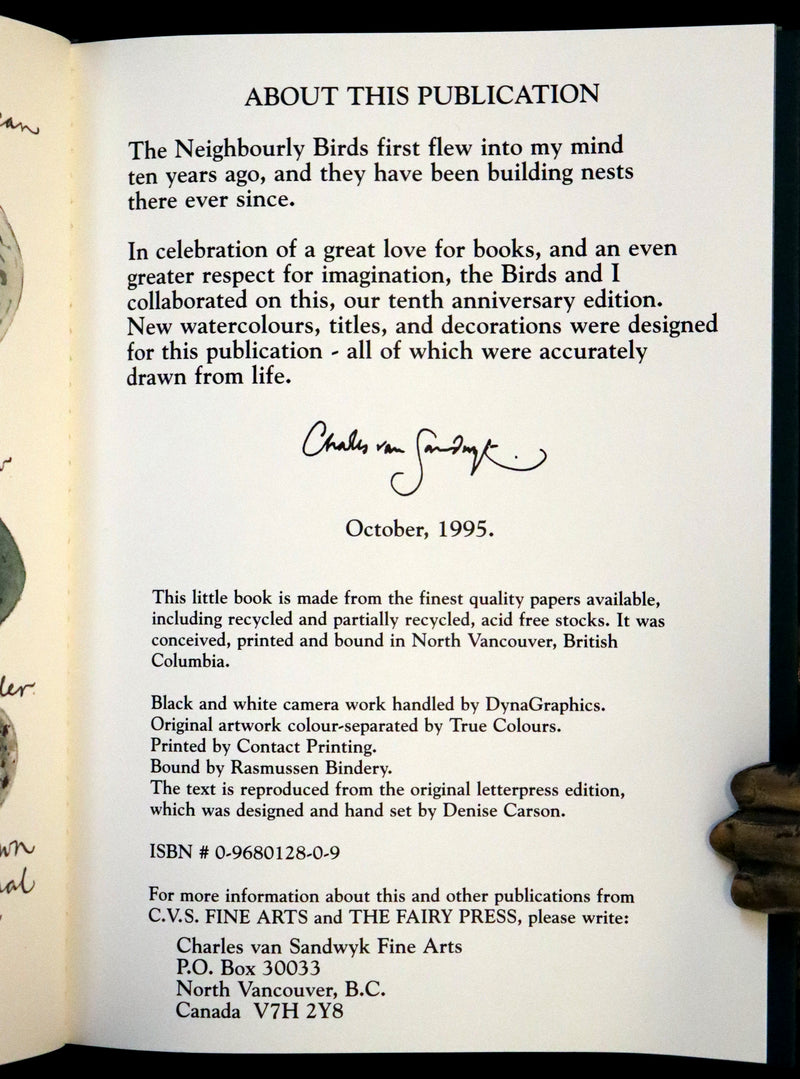 ABOUT THIS PUBLICATION
The Neighbourly Birds first flew into my mind
ten years ago, and they have been building nests
there ever since.
In celebration of a great love for books, and an even
greater respect for imagination, the Birds and I
collaborated on this, our tenth anniversary edition.
New watercolours, titles, and decorations were designed
for this publication - all of which were accurately
drawn from life.
Charles van Sandwyk.
October, 1995.
This little book is made from the finest quality papers available,
including recycled and partially recycled, acid free stocks. It was
conceived, printed and bound in North Vancouver, British
Columbia.
Black and white camera work handled by DynaGraphics.
Original artwork colour-separated by True Colours.
Printed by Contact Printing.
Bound by Rasmussen Bindery.
The text is reproduced from the original letterpress edition,
which was designed and hand set by Denise Carson.
ISBN # 0-9680128-0-9
For more information about this and other publications from
C.V.S. FINE ARTS and THE FAIRY PRESS, please write:
Charles van Sandwyk Fine Arts
P.O. Box 30033
North Vancouver, B.C.
Canada V7H 2Y8